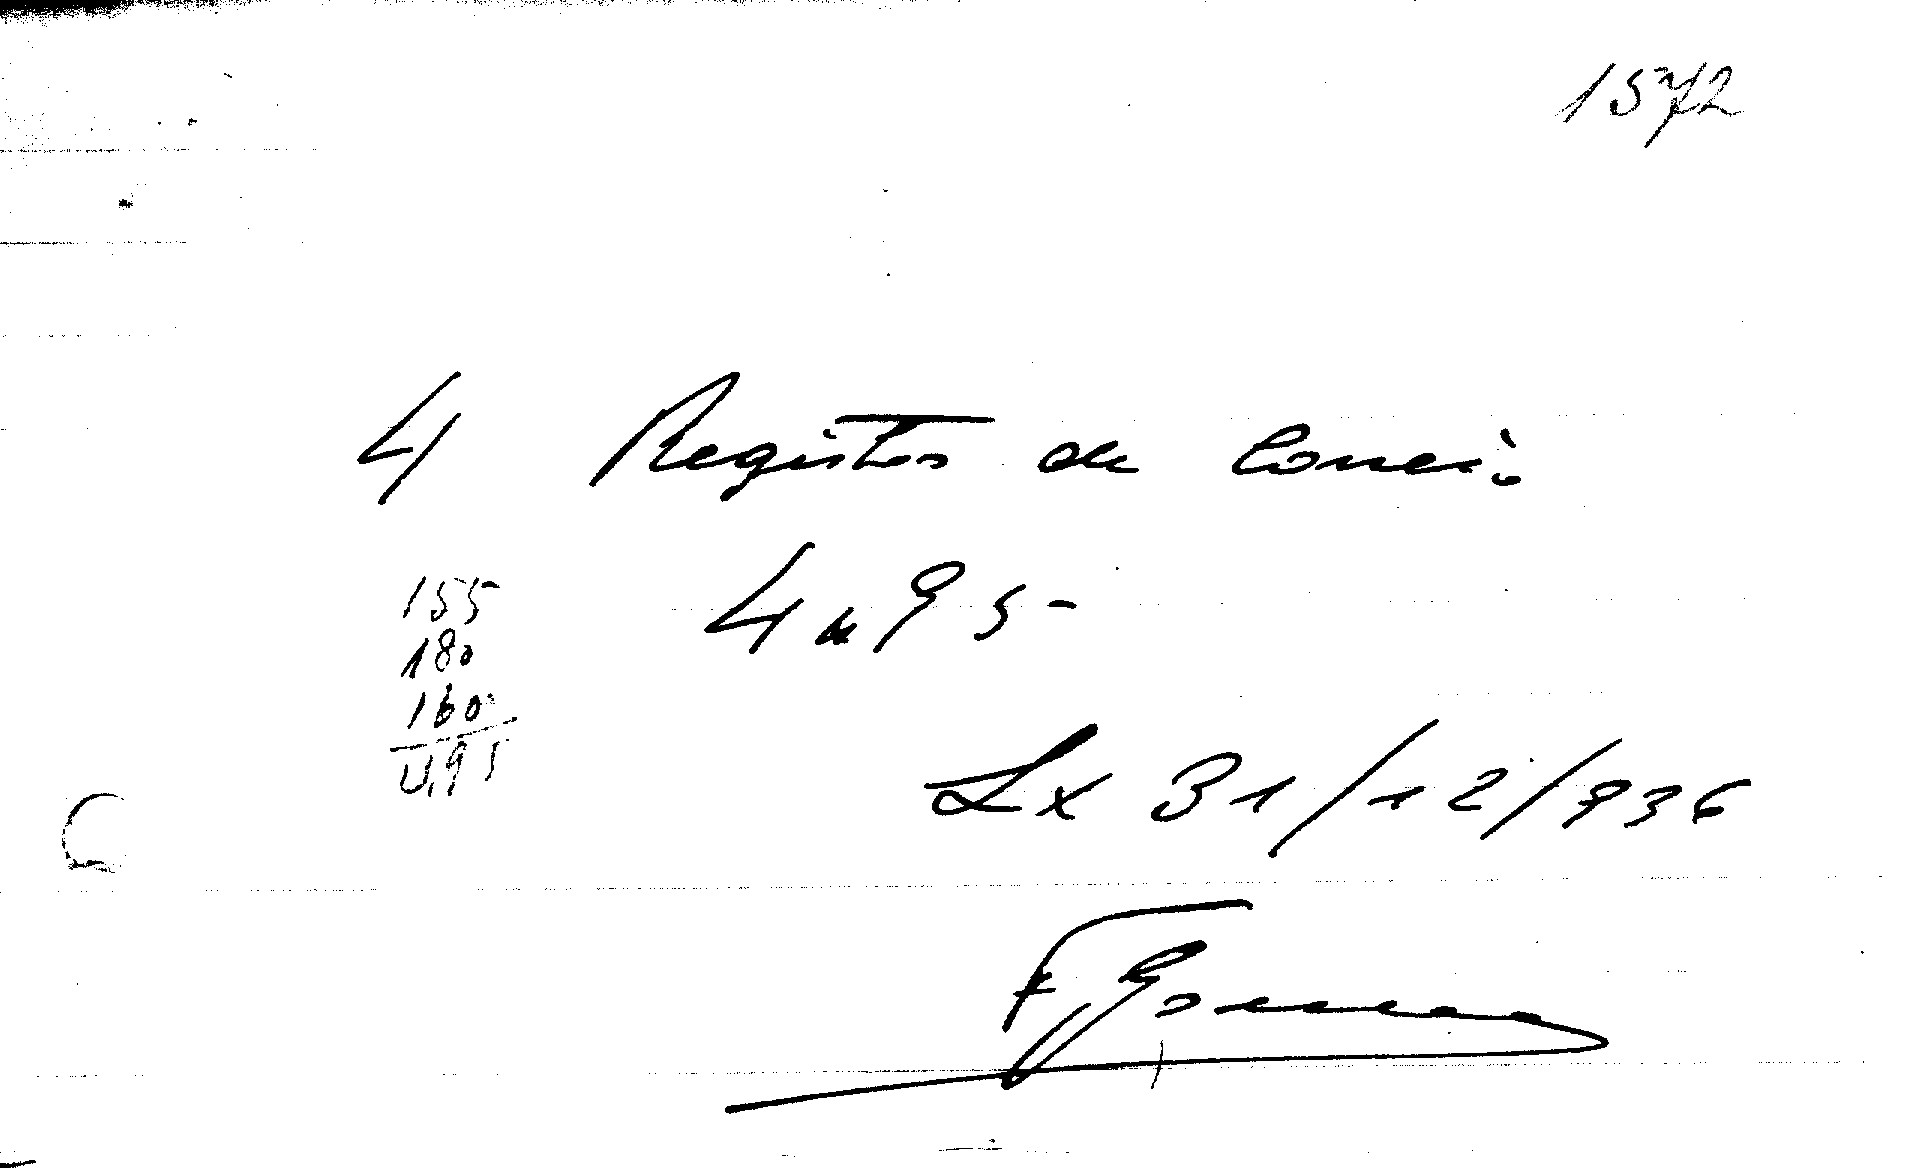 1572
4 Registos de Correio
155
4$95-
180
160
4,95
Lx 31/12/936